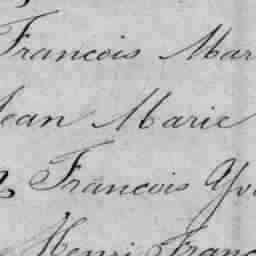 Francois Mar
Jean Marie
Francois Yv
Henri Franc